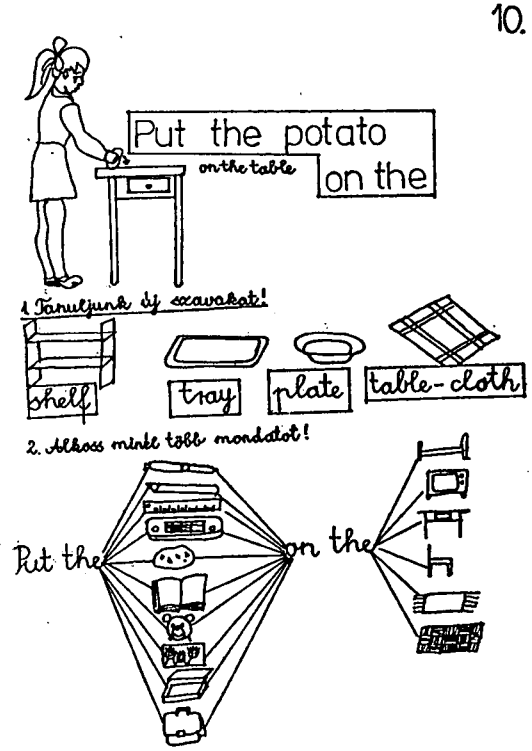 10.
Put the potato
on the table
on the
1. Tanuljunk új szavakat!
shelf
tray
plate
table-cloth
2. Alkoss minél több mondatot!
Put the on the